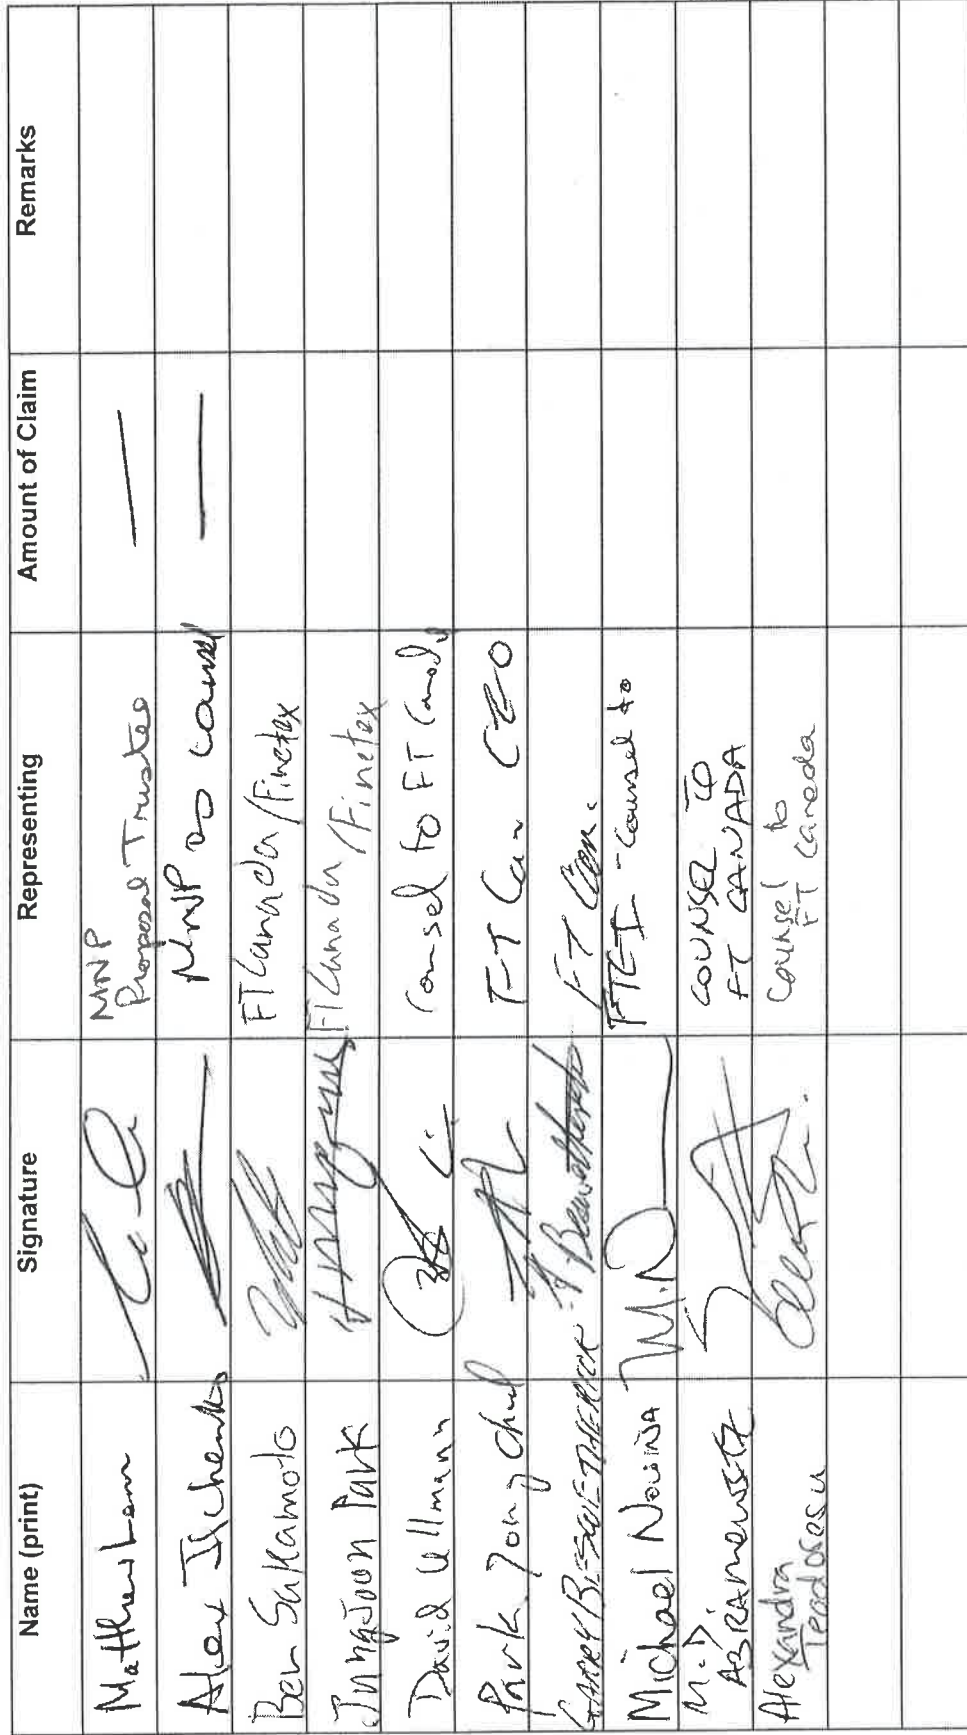 Name (print) Signature Representing Amount of Claim Remarks
Matthew Lem MNP
Proposal Trustee —
Alex Ilchenko MNP as counsel —
Ben Sakamoto FT Canada/Finetex
JungJoon Park FT Canada/Finetex
David Ullmann Counsel to FT Canada
Park Jong Chul FT Can CEO
FT Can.
Michael Nowina FTCI - Counsel to
M.D. COUNSEL TO
FT CANADA
Alexandra Counsel to
Teodorescu FT Canada